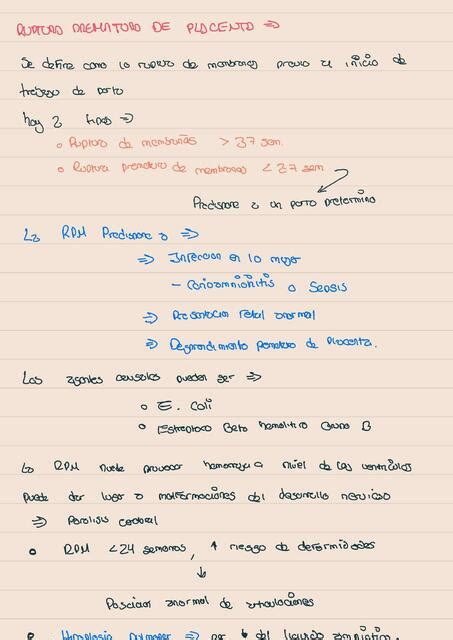 RUPTURA PREMATURA DE PLACENTA ⇒
Se define como la ruptura de membranas previo al inicio de
trabajo de parto
hay 2 tipos ⇒
◦ Ruptura de membranas > 37 sem.
◦ Ruptura prematura de membranas < 37 sem
Predispone a un parto pretermino
La RPM Predispone a ⇒
⇒ Infeccion en la mujer
- Corioamnionitis o Sepsis
⇒ Presentacion fetal anormal
⇒ Desprendimiento prematuro de Placenta.
Los agentes causales pueden ser ⇒
◦ E. Coli
◦ Estreptoco Beta hemolitico Grupo B
La RPM puede provocar hemorragia a nivel de los ventriculos
Puede dar lugar a malformaciones del desarrollo nervioso
⇒ Paralisis cerebral
◦ RPM < 24 semanas, ↑ riesgo de deformidades
↓
Posicion anormal de articulaciones
Hipoplasia pulmonar ⇒ por ↓ del liquido amniotico